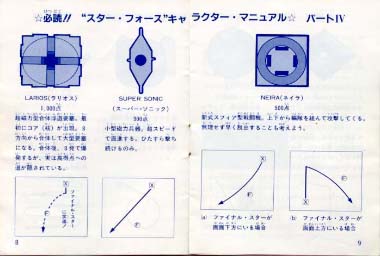 ☆必読!! “スター・フォース”キャラクター・マニュアル☆ パートⅣ
LARIOS(ラリオス)
1,000点
超磁力型合体浮遊要塞。最
初にコア(核)が出現。8
方向から合体して大型要塞
になる。合体後、8発で爆
発するが、実は高得点への
道が隠されている。
SUPER SONIC
(スーパー・ソニック)
300点
小型磁力兵器。超スピード
で直進する。ひたすら撃ち
続けるのみ。
NEIRA(ネイラ)
500点
新式スフィア型戦闘機。上下から編隊を組んで攻撃してくる。
無理せず早く脱出することも考えよう。
X
F
ファイナル・スター
に突進!
X
F
X
F
(a) ファイナル・スターが
画面下方にいる場合
X
F
(b) ファイナル・スターが
画面上方にいる場合
8
9